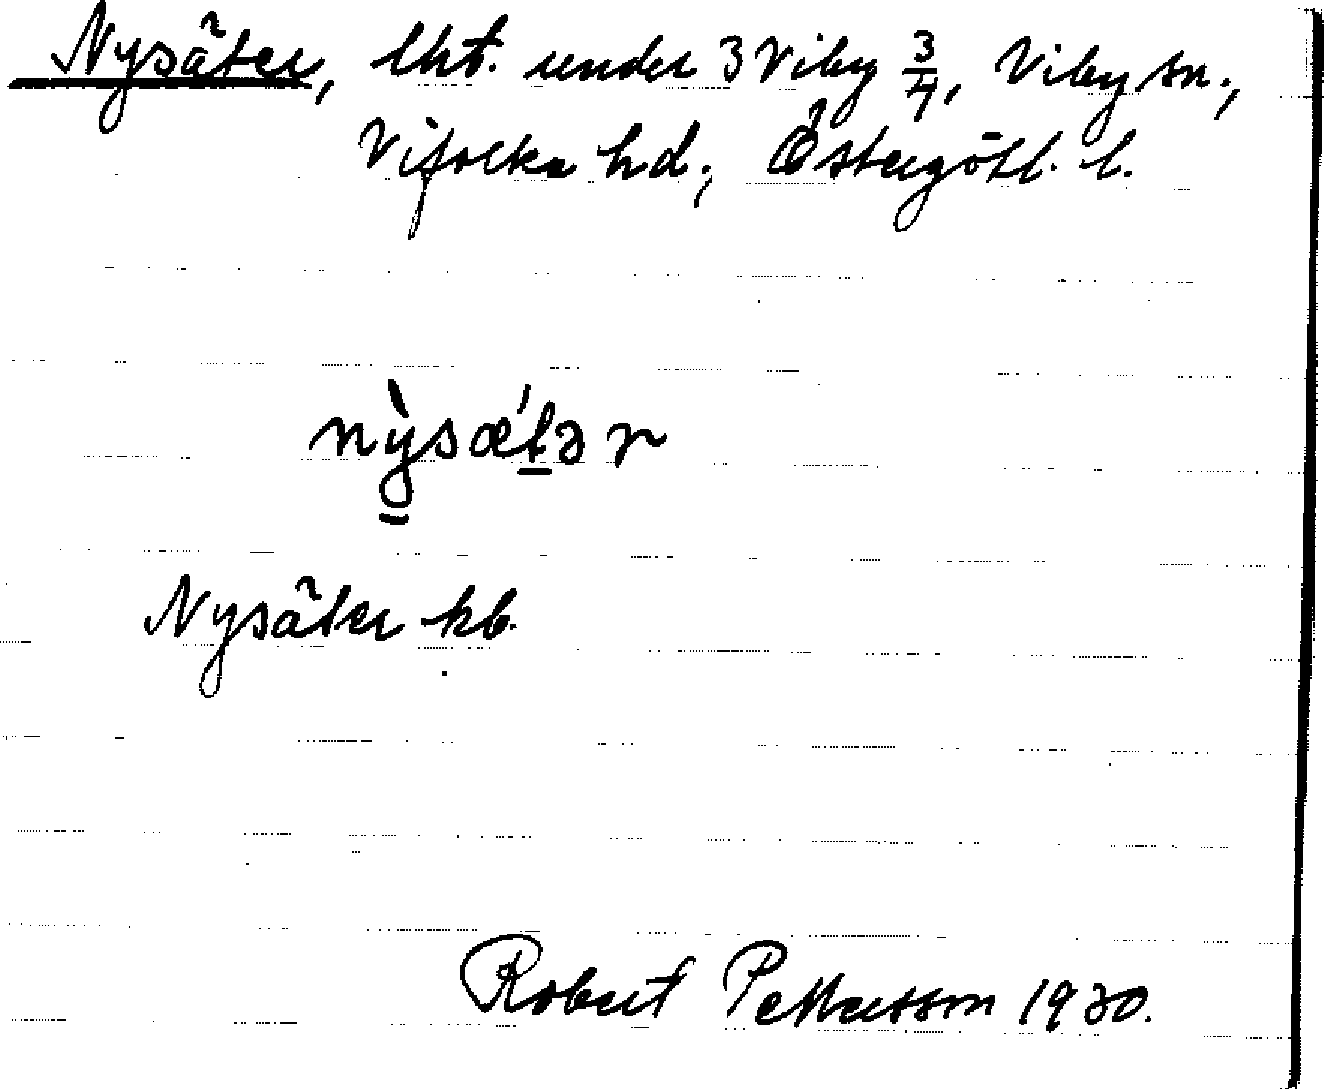 Nysäter, lht. under 3 Viby 3/4, Viby sn.,
Vifolka hd., Östergötl. l.
nỳsǽtər
Nysäter kb.
Robert Pettersson 1930.